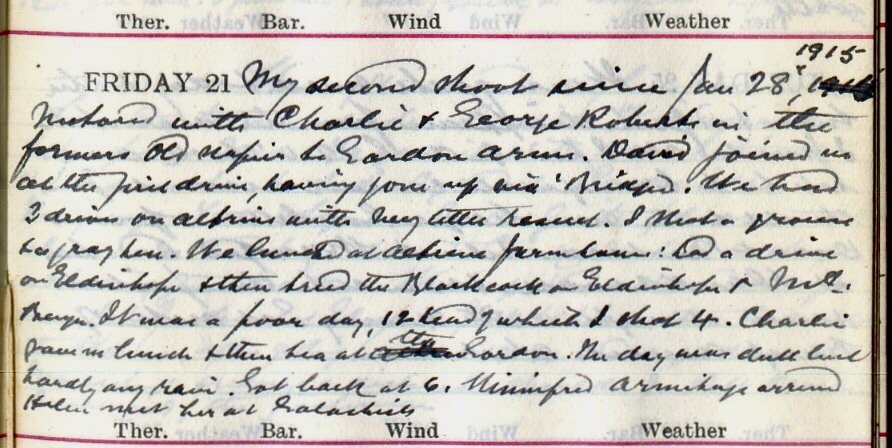 Ther. Bar. Wind Weather
1915
FRIDAY 21 My second shoot since Jan 28,
Motored with Charlie & George Roberts in the
formers old Napier to Gordon Arms. David joined us
at the first drive, having gone up via 'Bridge'. We had
2 drives on Altrive with very little result. I shot a grouse
& a gray hen. We lunched at Altrive farmhouse: had a drive
on Eldinhope & then tried the Blackcock on Eldinhope & Mt.
Benger. It was a poor day, 12 head of which I shot 4. Charlie
gave us lunch & then tea at the Gordon. The day was dull but
hardly any rain. Got back at 6. Winifred Armitage arrived
Helen met her at Galashiels
Ther. Bar. Wind Weather